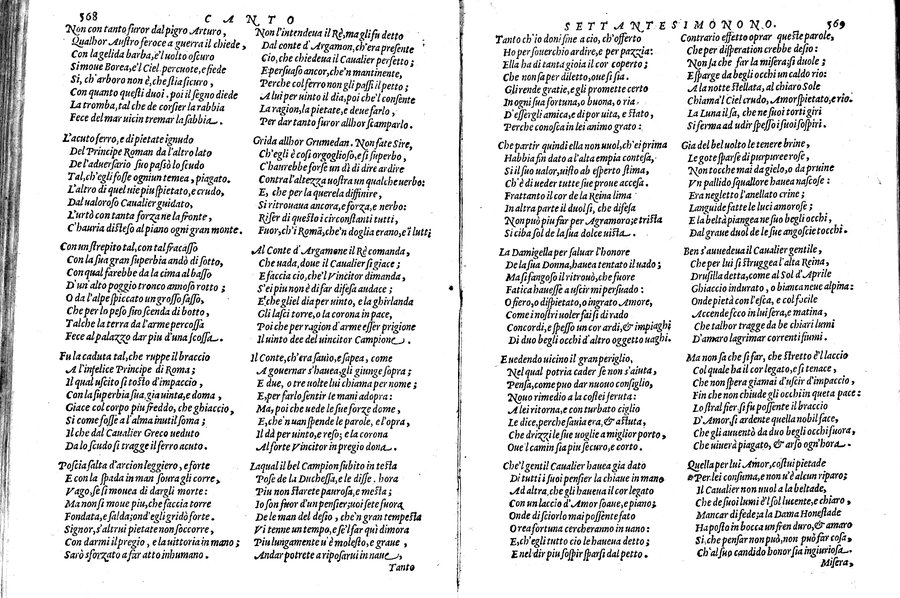 568
CANTO
Non con tanto furor dal pigro Arturo,
Qualhor Austro feroce a guerra il chiede,
Con la gelida barba, e'l uolto oscuro
Si moue Borea, e'l Ciel percuote, e fiede
Sì, ch'arboro non è, che stia sicuro,
Con quanto questi duoi. poi il segno diede
La tromba, tal che de corsier la rabbia
Fece del mar uicin tremar la sabbia.
L'acuto ferro, e di pietate ignudo
Del Principe Roman da l'altro lato
De l'aduersario suo passò lo scudo
Tal, ch'egli fosse ogniun temea, piagato.
L'altro di quel uie piu spietato, e crudo,
Dal ualoroso Caualier guidato,
L'urtò con tanta forza ne la fronte,
C'hauria disteso al piano ogni gran monte.
Con un strepito tal, con tal fracasso
Con la sua gran superbia andò di sotto,
Con qual farebbe da la cima al basso
D'un'alto poggio tronco annoso rotto;
O da l'alpe spiccato un grosso sasso,
Che per lo peso suo scenda di botto,
Talche la terra da l'arme percossa
Fece al palazzo dar piu d'una scossa.
Fu la caduta tal, che ruppe il braccio
A l'infelice Principe di Roma;
Il qual uscito si tosto d'impaccio,
Con la superbia sua, gia uinta, e doma,
Giace col corpo piu freddo, che ghiaccio,
Si come fosse a l'alma inutil soma;
Il che dal Caualier Greco ueduto
Da lo scudo si tragge il ferro acuto.
Poscia salta d'arcion leggiero, e forte
E con la spada in man soura gli corre,
Vago, se si mouea di dargli morte:
Ma non si moue piu, che faccia torre
Fondata, e salda; ond'egli gridò forte.
Signor, s'altrui pietate non soccorre,
Con darmi il pregio, e la uittoria in mano;
Sarò sforzato a far atto inhumano.
Non l'intendeua il Rè, ma gli fu detto
Dal conte d'Argamon, ch'era presente
Cio, che chiedeua il Caualier perfetto;
E persuaso ancor, che'n mantinente,
Perche col ferro non gli passi il petto;
A lui per uinto il dia, poi che'l consente
La ragion, la pietate, e deue farlo,
Per dar tanto furor allhor scamparlo.
Grida allhor Grumedan. Non fate Sire,
Ch'egli è così orgoglioso, e si superbo,
C'haurebbe forse un dì di dire ardire
Contra l'altezza uostra un qualche uerbo:
E, che per la querela diffinire,
Si ritrouaua ancora, e forza, e nerbo:
Rifer di questo i circonstanti tutti,
Fuor, ch'i Romã, che'n doglia erano, e'i lutti
Al Conte d'Argamone il Rè comanda,
Che uada, doue il Caualier si giace;
E faccia cio, che'l Vincitor dimanda,
S'ei piu non è di far difesa audace;
E che gliel dia per uinto, e la ghirlanda
Gli lasci torre, o la corona in pace,
Poi che per ragion d'arme esser prigione
Il uinto dee del uincitor Campione.
Il Conte, ch'era sauio, e sapea, come
A gouernar s'hauea, gli giunge sopra;
E due, o tre uolte lui chiama per nome;
E per farlo sentir le mani adopra:
Ma, poi che uede le sue forze dome,
E, che'n uan spende le parole, e l'opra,
Il dà per uinto, e reso; e la corona
Al forte Vincitor in pregio dona.
Laqual il bel Campion subito in testa
Pose de la Duchessa, e le disse. hora
Piu non starete paurosa, e mesta;
Io son fuor d'un pensier; uoi sete fuora
De le man del desio, che'n gran tempesta
Vi tenne un tempo, e se'l far qui dimora
Piu lungamente u'è molesto, e graue,
Andar potrete a riposarui in naue,
Tanto
SETTANTESIMONONO.
569
Tanto ch'io doni fine a cio, ch'offerto
Ho per souerchio ardire, e per pazzia:
Ella ha di tanta gioia il cor coperto;
Che non sa per diletto, oue si sia.
Gli rende gratie, e gli promette certo
In ogni sua fortuna, o buona, o ria
D'essergli amica, e di por uita, e stato,
Perche conosca in lei animo grato:
Che partir quindi ella non uuol, ch'ei prima
Habbia fin dato a l'alta empia contesa,
Si il suo ualor, uisto ab esperto stima,
Ch'è di ueder tutte sue proue accesa.
Frattanto il cor de la Reina lima
In altra parte il duol sì, che difesa
Non può piu far per Agramoro; e trista
Si ciba sol de la sua dolce uista.
La Damigella per saluar l'honore
De la sua Donna, hauea tentato il uado;
Ma sì fangoso il ritrouò, che fuore
Fatica hauesse a uscir mi persuado:
O fiero, o dispietato, o ingrato Amore,
Come i nostri uoler fai sì di rado
Concordi, e spesso un cor ardi, & impiaghi
Di duo begli occhi d'altro oggetto uaghi.
E uedendo uicino il gran periglio,
Nel qual potria cader se non s'aiuta,
Pensa, come può dar nuouo consiglio,
Nouo rimedio a la costei feruta:
A lei ritorna, e con turbato ciglio
Le dice, perche sauia era, & astuta,
Che drizzi le sue uoglie a miglior porto,
Oue'l camin sia piu sicuro, e corto.
Che'l gentil Caualier hauea gia dato
Di tutti i suoi pensier la chiaue in mano
Ad altra, che gli haueua il cor legato
Con un laccio d'Amor soaue, e piano;
Onde disciorlo mai potrebbe fato
O rea fortuna cercheranno in uano:
E, ch'egli tutto cio le hauea detto;
E nel dir piu sospir sparsi dal petto.
Contrario effetto oprar queste parole,
Che per disperation crebbe desio:
Non sa che far la misera; si duole;
E sparge da begli occhi un caldo rio:
A la notte stellata, al chiaro Sole
Chiama'l Ciel crudo, Amor spietato, e rio.
La Luna il sa, che ne suoi torti giri
Si ferma ad udir spesso i suoi sospiri.
Gia del bel uolto le tenere brine,
Le gote sparse di purpuree rose,
Non tocche mai da gielo, o da pruine
Vn pallido squallore hauea nascose:
Era negletto l'anellato crine;
Languide fatte le luci amorose;
E la beltà piangea ne suo begli occhi,
Dal graue duol de le sue angoscie tocchi.
Ben s'auuedeua il Caualier gentile,
Che per lui si struggea l'alta Reina,
Drusilla detta, come al Sol d'Aprile
Ghiaccio indurato, o bianca neue alpina:
Onde pietà con l'esca, e col focile
Accende foco in lui sera, e matina,
Che talhor tragge da be chiari lumi
D'amaro lagrimar correnti fiumi.
Ma non sa che si far, che stretto è'l laccio
Col quale ha il cor legato, e sì tenace,
Che non spera giamai d'uscir d'impaccio,
Fin che non chiude gli occhi in queta pace:
Lo stral fier. sì fu possente il braccio
D'Amor sì ardente quella nobil face,
Che gli auuentò da duo begli occhi fuora,
Che uiuerà piagato, & arso ogn'hora.
Quella per lui Amor, costui pietade
Per lei consuma, e non u'è alcun riparo;
Il Caualier non uuol a la beltade,
Che de suoi lumi è'l sol lucente, e chiaro,
Mancar di fede; a la Dama Honestade
Ha posto in bocca un fren duro, & amaro
Sì, che pensar non può, non può far cosa,
Ch'al suo candido honor sia ingiuriosa.
Misera,